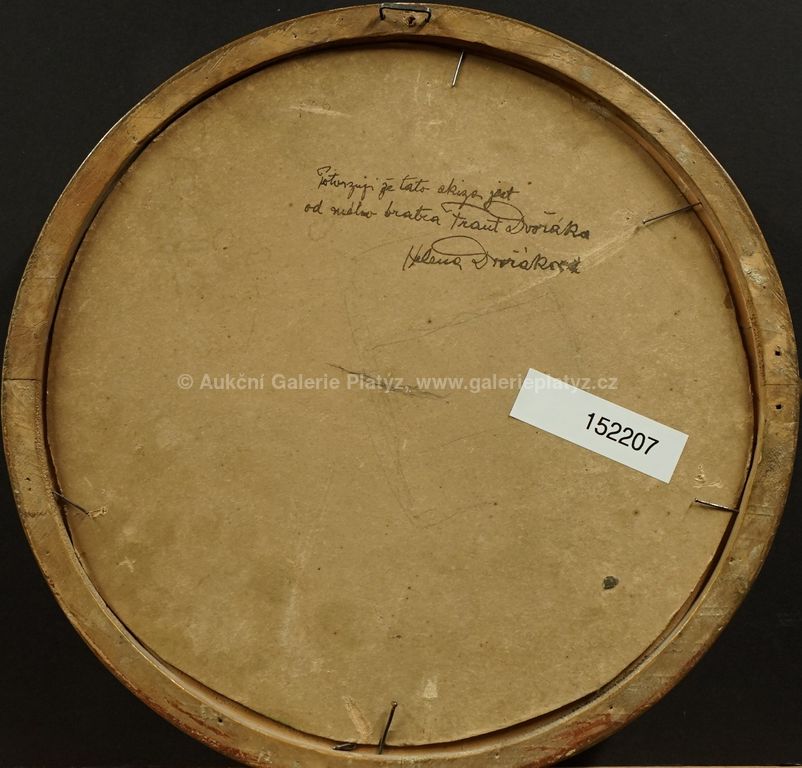 Potvrzuji že tato skizza jest
od mého bratra Frant Dvořáka
Helena Dvořáková
© Aukční Galerie Platýz, www.galerieplatyz.cz
152207